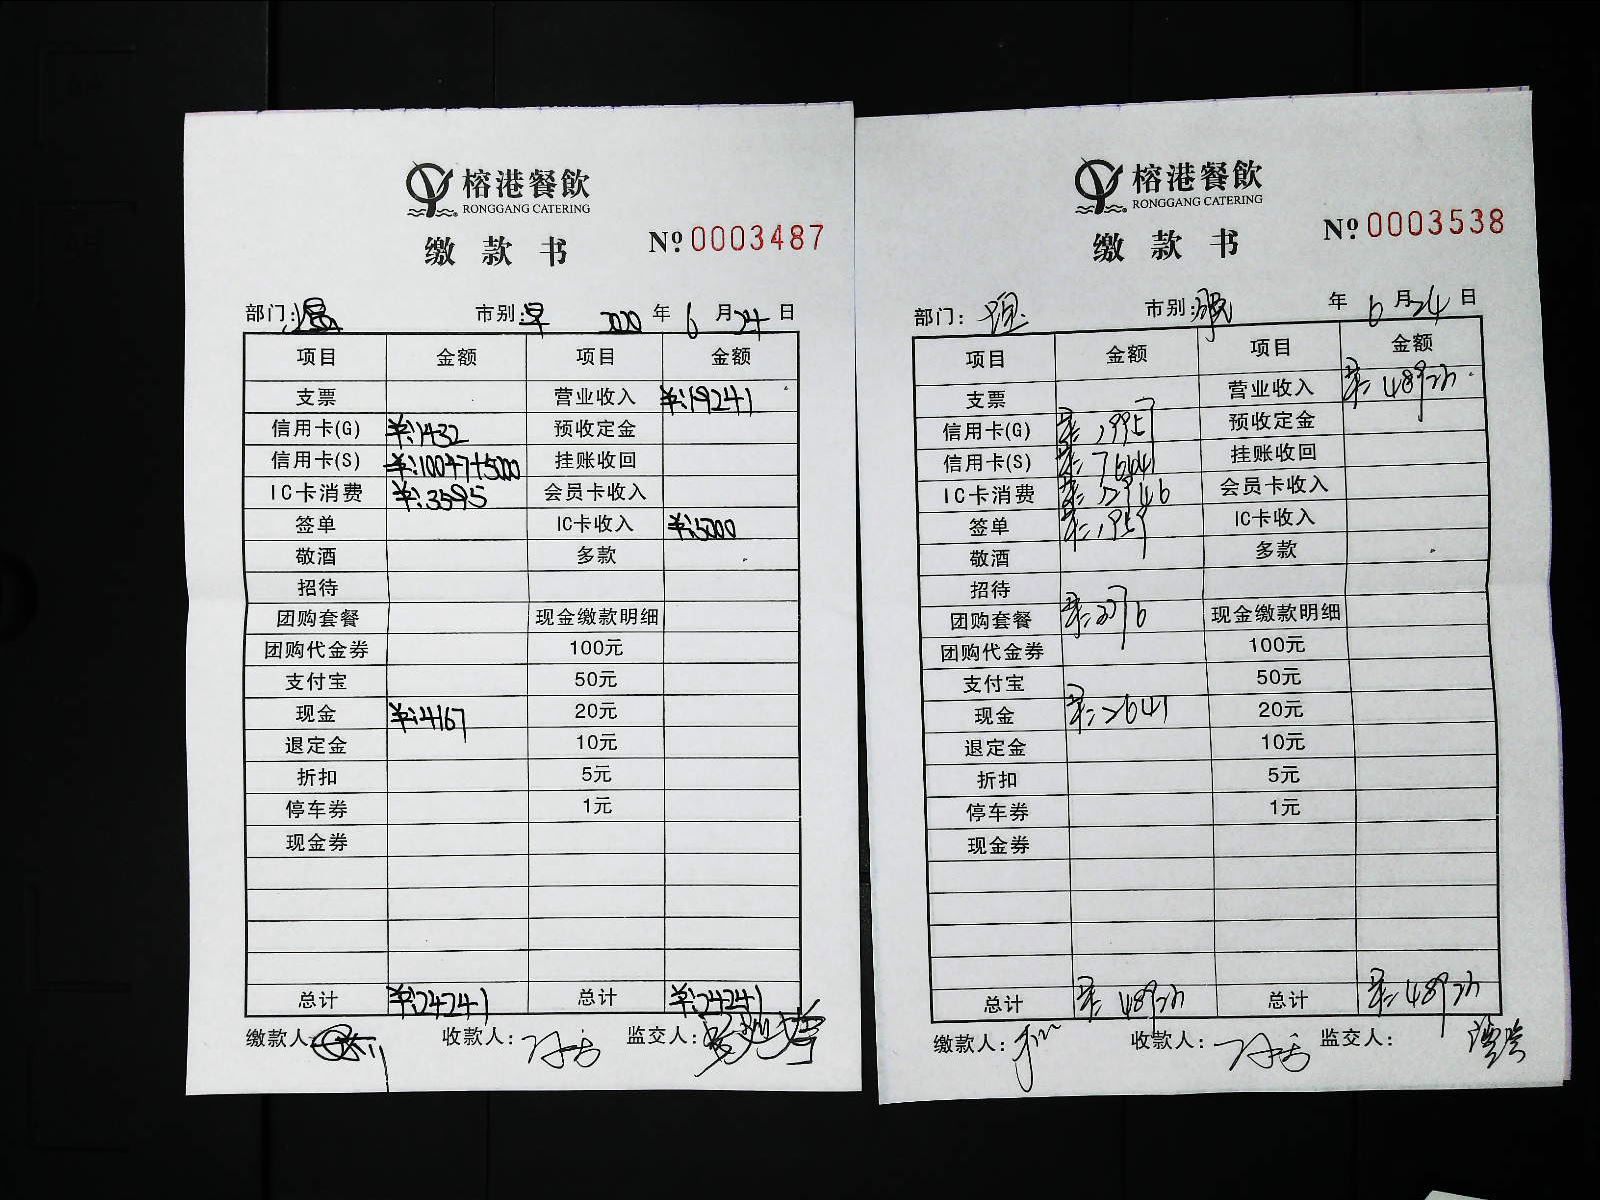 榕港餐飲
RONGGANG CATERING
缴款书
Nº 0003487
部门: 市别:早 2020年6月24日
项目 金额 项目 金额
支票 营业收入 ¥:19241
信用卡(G) ¥:1432 预收定金
信用卡(S) ¥:10047+5000 挂账收回
IC卡消费 ¥:3595 会员卡收入
签单 IC卡收入 ¥:5000
敬酒 多款
招待
团购套餐 现金缴款明细
团购代金券 100元
支付宝 50元
现金 ¥:4167 20元
退定金 10元
折扣 5元
停车券 1元
现金券
总计 ¥:24241 总计 ¥:24241
缴款人: 收款人: 监交人:
榕港餐飲
RONGGANG CATERING
缴款书
Nº 0003538
部门: 市别: 年6月24日
项目 金额 项目 金额
支票 营业收入
信用卡(G) 预收定金
信用卡(S) 挂账收回
IC卡消费 会员卡收入
签单 IC卡收入
敬酒 多款
招待
团购套餐 现金缴款明细
团购代金券 100元
支付宝 50元
现金 20元
退定金 10元
折扣 5元
停车券 1元
现金券
总计 总计
缴款人: 收款人: 监交人: